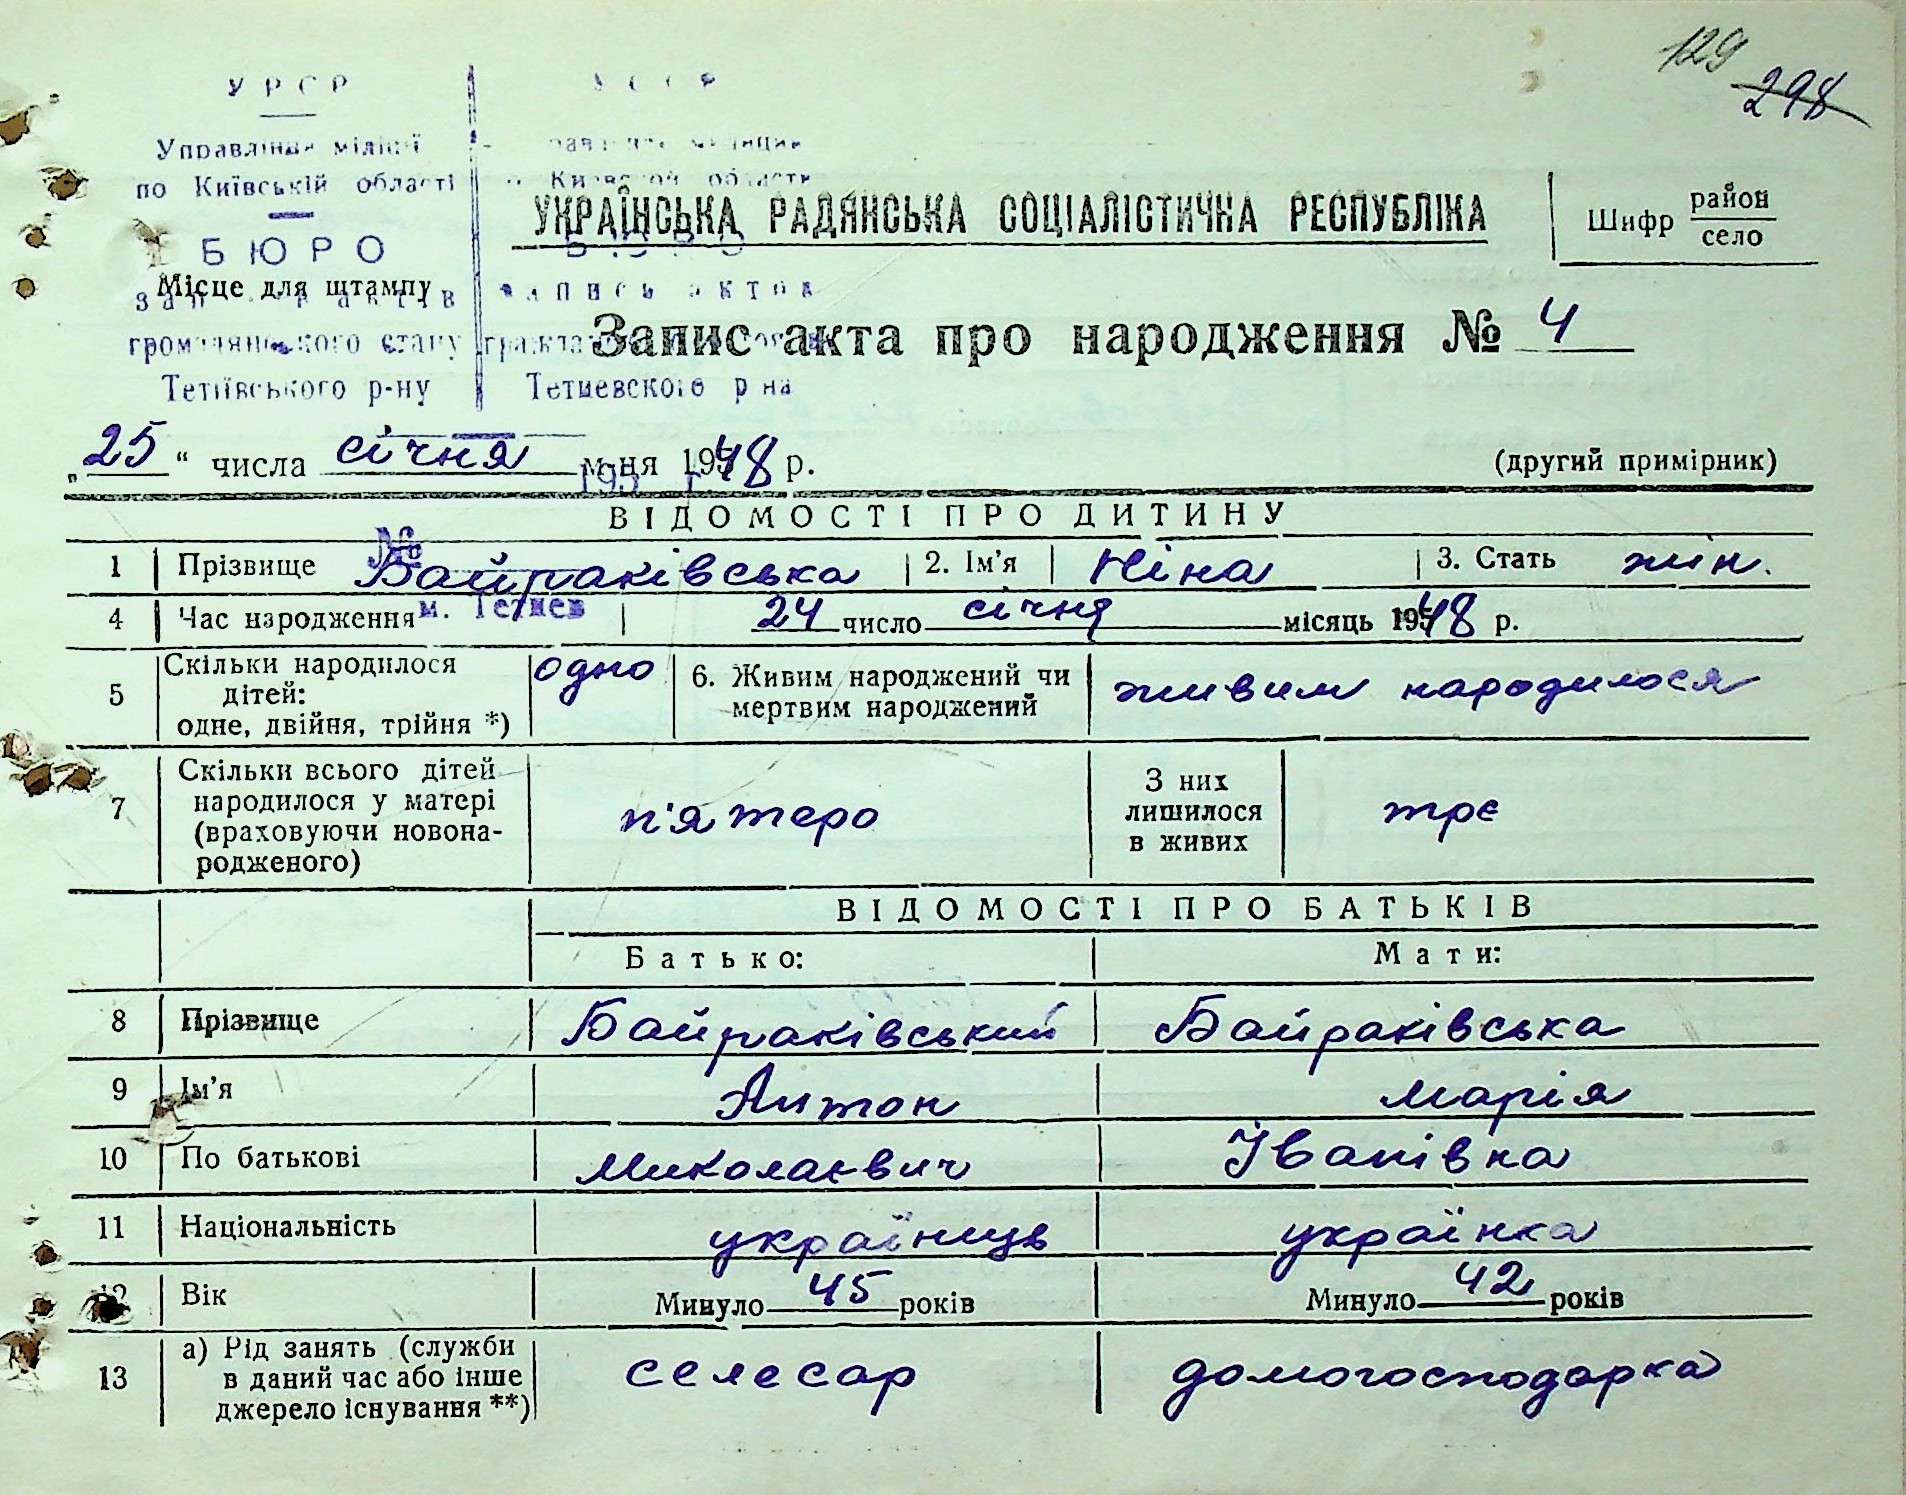 129
298
УРСР
Управління міліції
по Київській області
БЮРО
громадянського стану
Тетіївського р-ну
Тетиевского р на
м. Тетиев
№
УКРАЇНСЬКА РАДЯНСЬКА СОЦІАЛІСТИЧНА РЕСПУБЛІКА
Шифр район
село
Місце для штампу
Запис акта про народження № 4
„25“ числа січня м-ня 1948 р.
(другий примірник)
ВІДОМОСТІ ПРО ДИТИНУ
1 Прізвище Байраківська 2. Ім'я Ніна 3. Стать жін.
4 Час народження 24 число січня місяць 1948 р.
5 Скільки народилося дітей: одне, двійня, трійня *) одно 6. Живим народжений чи мертвим народжений живим народилося
7 Скільки всього дітей народилося у матері (враховуючи новона-родженого) п'ятеро З них лишилося в живих трє
ВІДОМОСТІ ПРО БАТЬКІВ
Батько: Мати:
8 Прізвище Байраківський Байраківська
9 Ім'я Антон Марія
10 По батькові Миколаєвич Іванівна
11 Національність українць українка
12 Вік Минуло 45 років Минуло 42 років
13 а) Рід занять (служби в даний час або інше джерело існування **) селесар домогосподарка